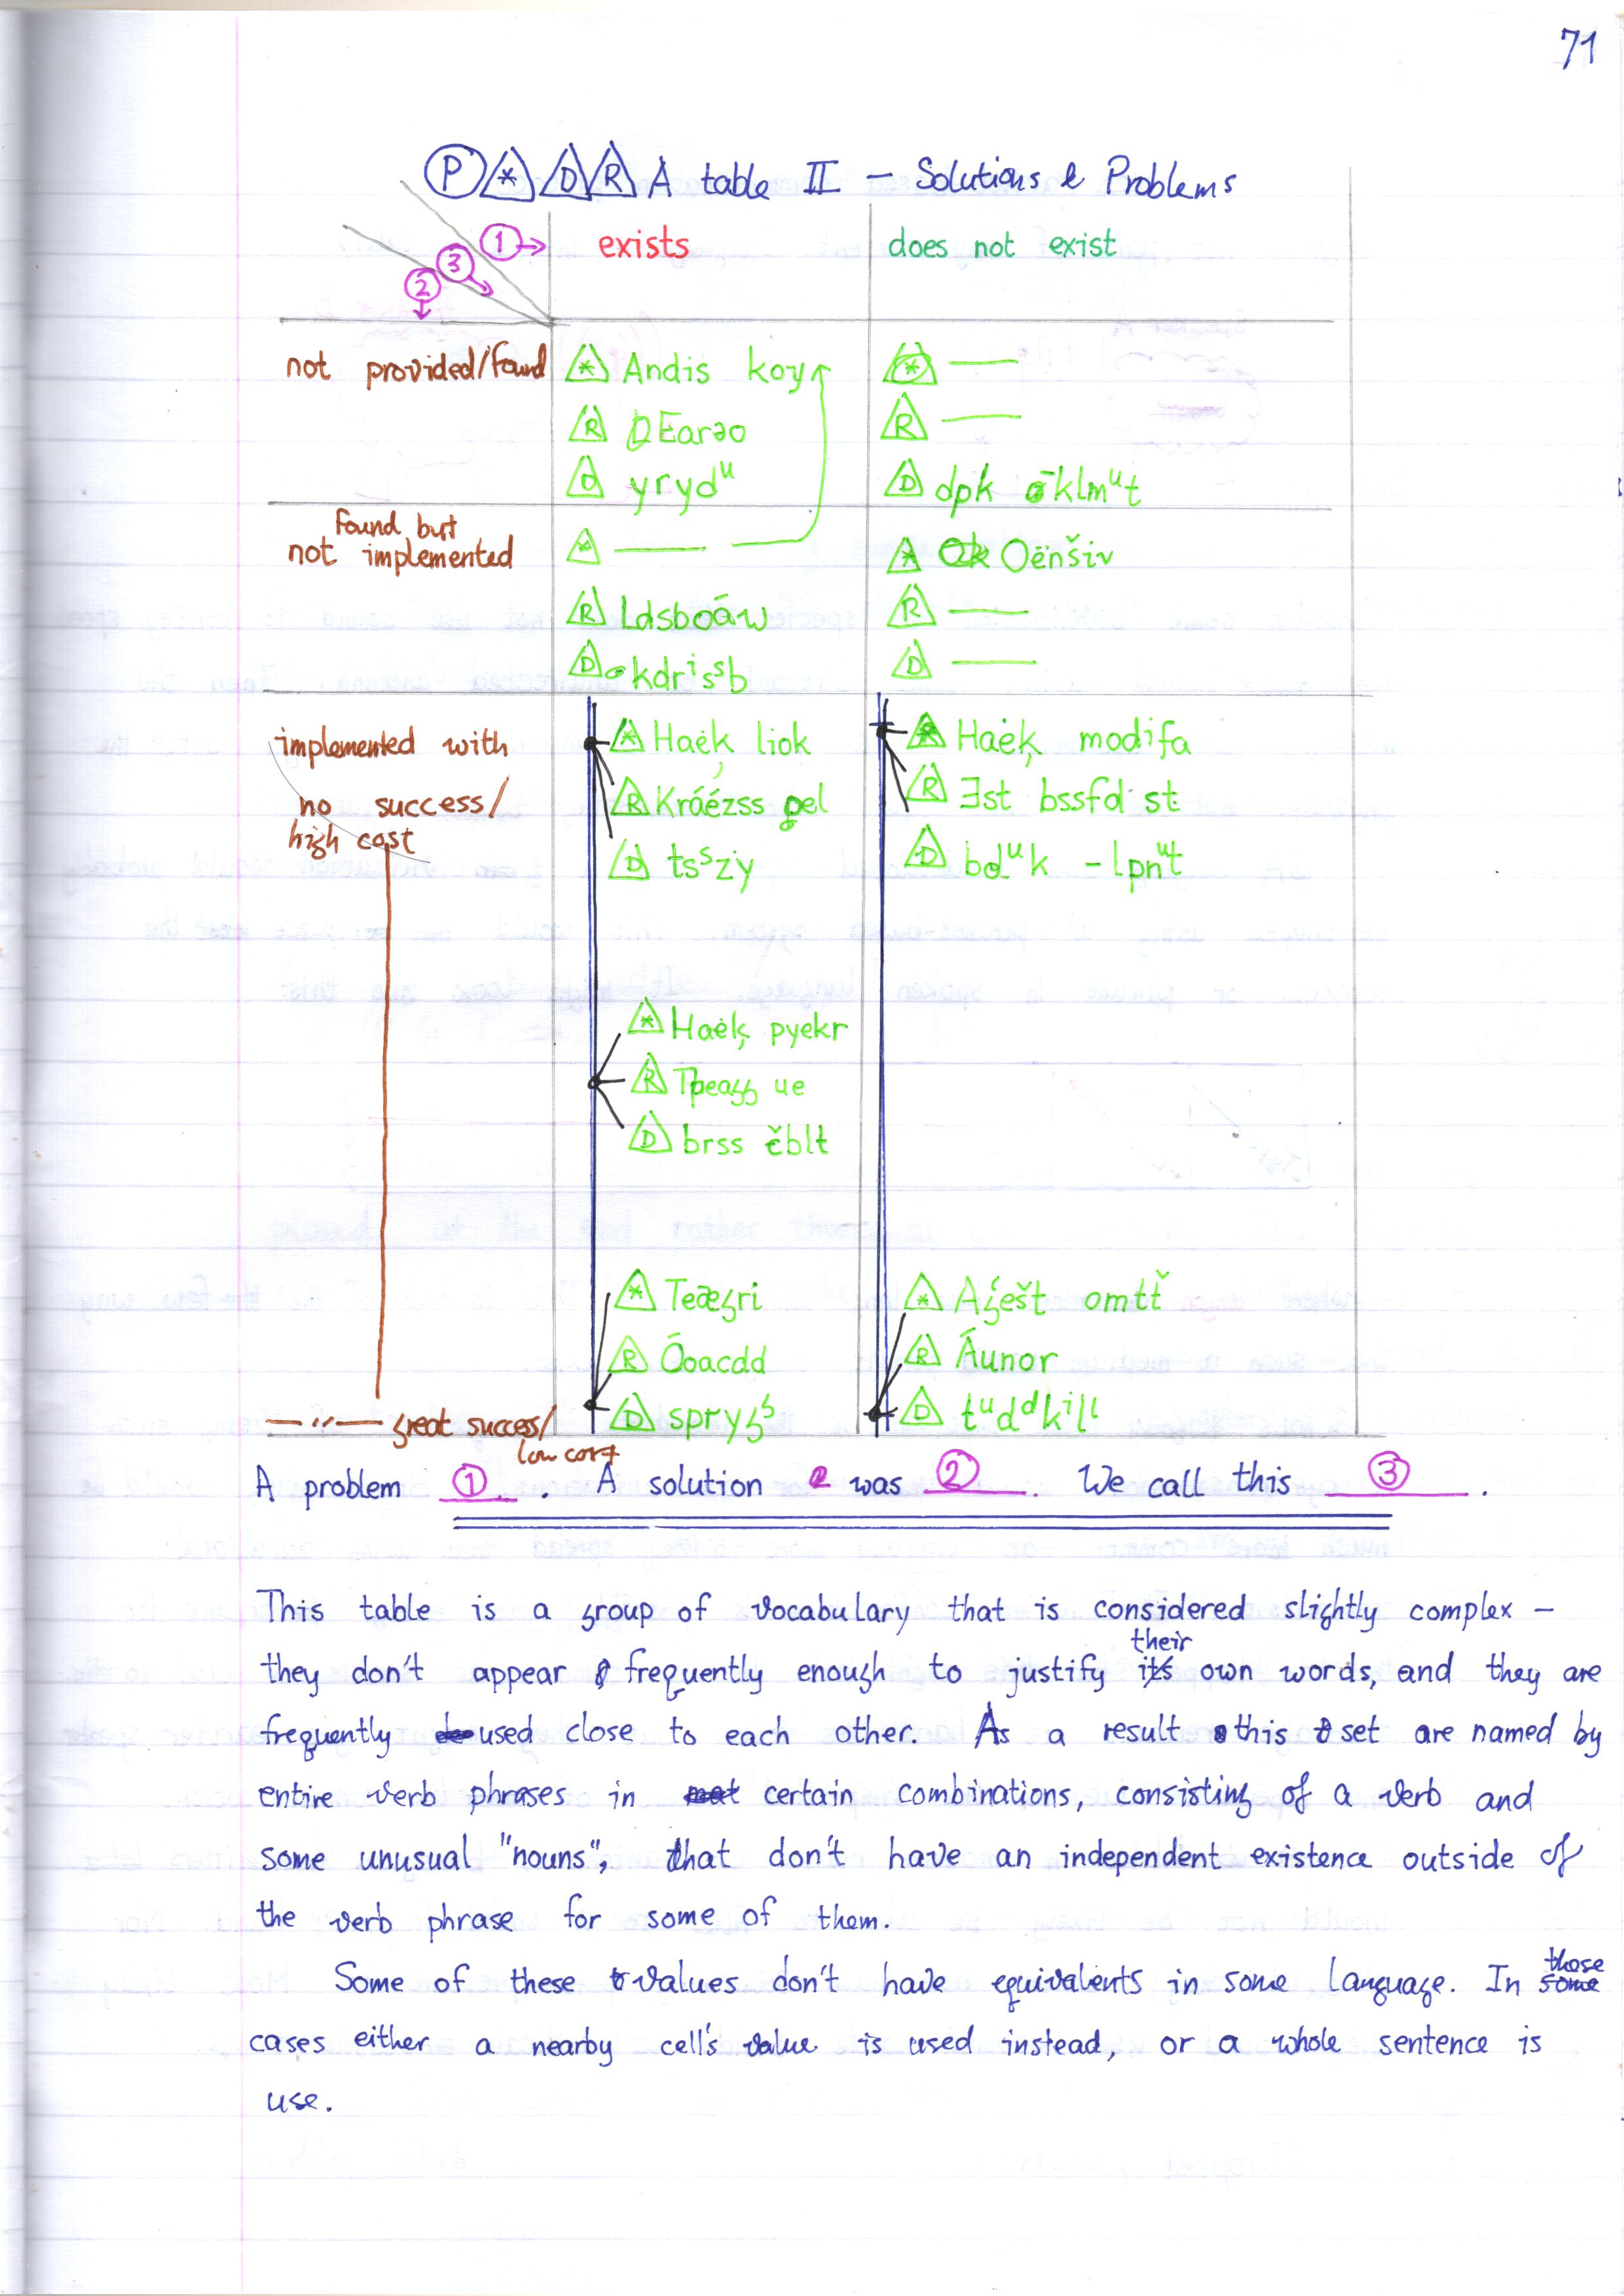 71
P * D R A table II – Solutions & Problems
1 → exists does not exist
3
2
not provided/found * Andis koy * —
R DEarəo R —
D yrydᵘ D dpk ōklmᵘt
found but
not implemented * — * Oënšiv
R Ldsboáw R —
D kdrⁱsˢb D —
implemented with * Haėķ liok * Haėķ modifa
no success/ R Kráézss gel R Ǝst bssfd st
high cost D tsˢzy D bdᵘk -lpnᵘt
* Haėķ pyekr
R
D brss čblt
* Teægri * Aģešt omtť
R Óoacdd R Áunor
D sprygˢ D tᵘddkill
— ‶ — great success/
low cost
A problem 1. A solution was 2. We call this 3.
This table is a group of vocabulary that is considered slightly complex –
they don't appear frequently enough to justify their own words, and they are
frequently used close to each other. As a result this set are named by
entire verb phrases in certain combinations, consisting of a verb and
some unusual "nouns", that don't have an independent existence outside of
the verb phrase for some of them.
Some of these values don't have equivalents in some language. In those
cases either a nearby cell's value is used instead, or a whole sentence is
use.